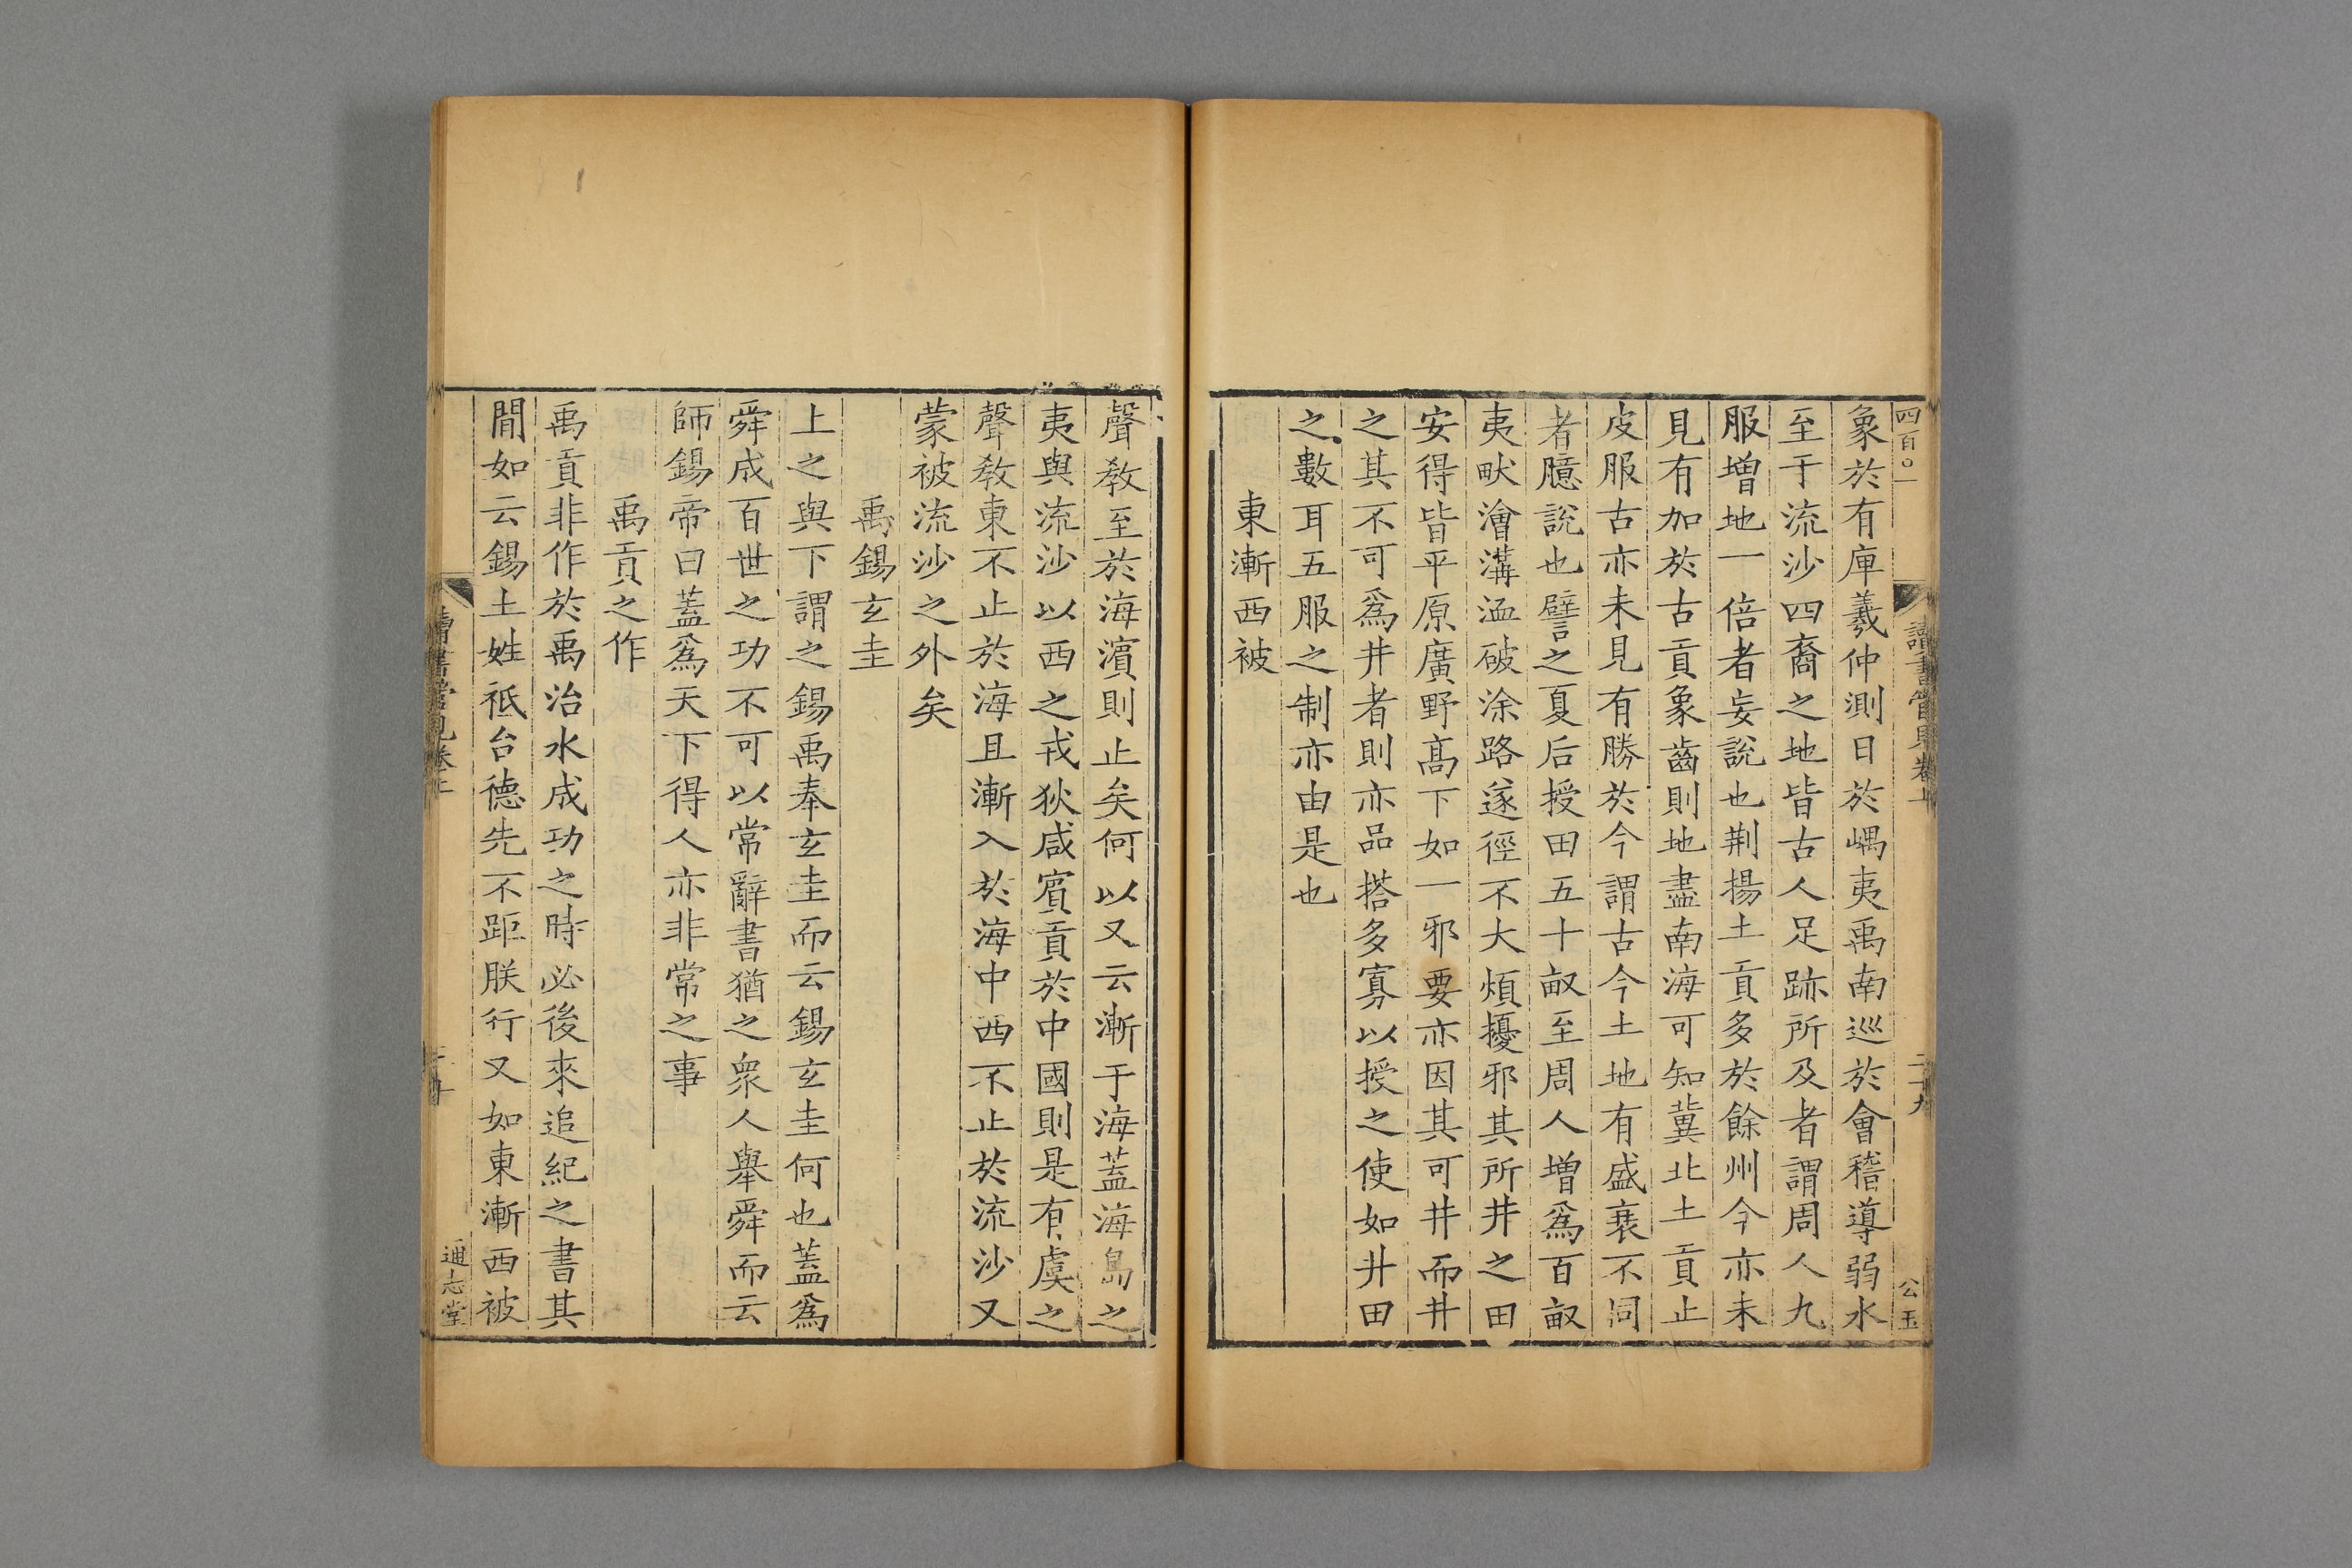 四百〇一
讀書管見卷上
二十九
公玉
象於有庳羲仲測日於嵎夷禹南巡於會稽導弱水
至于流沙四裔之地皆古人足跡所及者謂周人九
服增地一倍者妄說也荆揚土貢多於餘州今亦未
見有加於古貢象齒則地盡南海可知冀北土貢止
皮服古亦未見有勝於今謂古今土地有盛衰不同
者臆說也譬之夏后授田五十畝至周人增爲百畝
夷畎澮溝洫破涂路遂徑不大煩擾邪其所井之田
安得皆平原廣野髙下如一邪要亦因其可井而井
之其不可爲井者則亦品搭多寡以授之使如井田
之數耳五服之制亦由是也
東漸西被
聲敎至於海濵則止矣何以又云漸于海蓋海島之
夷與流沙以西之戎狄咸賓貢於中國則是有虞之
聲敎東不止於海且漸入於海中西不止於流沙又
蒙被流沙之外矣
禹錫玄圭
上之與下謂之錫禹奉玄圭而云錫玄圭何也蓋爲
舜成百世之功不可以常辭書猶之衆人舉舜而云
師錫帝曰蓋爲天下得人亦非常之事
禹貢之作
禹貢非作於禹治水成功之時必後來追紀之書其
間如云錫土姓祗台德先不距朕行又如東漸西被
讀書管見卷上
通志堂